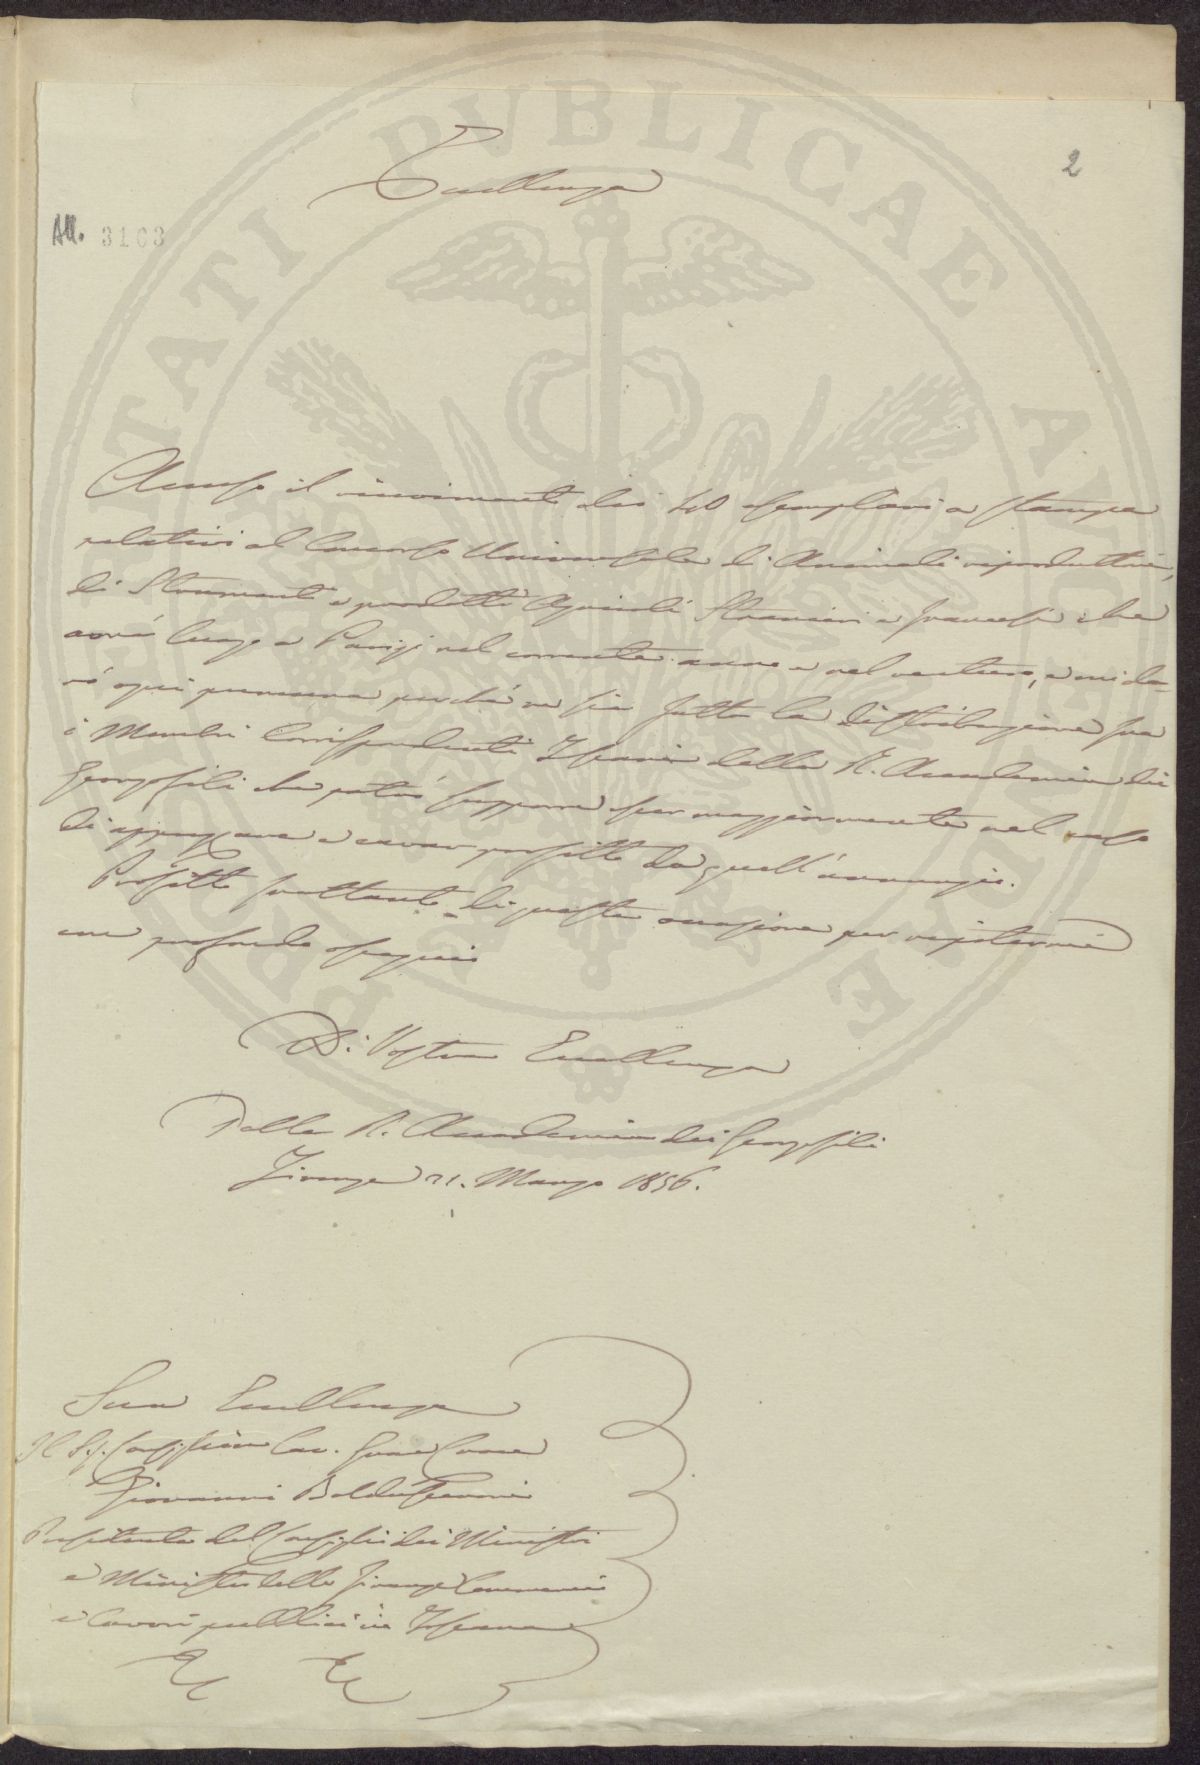 2
Eccellenza
All. 3103
Accuso il ricevimento dei 40 esemplari a stampa
relativi al Concorso Universale di Animali riproduttori,
di Strumenti e prodotti Agricoli Stranieri e francesi che
avrà luogo a Parigi nel corrente anno e nel venturo, e mi da-
rò ogni premura perché ne sia fatta la distribuzione fra
i Membri Corrispondenti Toscani della R. Accademia dei
Georgofili che potrò supporre esser maggiormente nel caso
di apprezzare e cavar profitto da quell'annunzio.
Profitto frattanto di questa occasione per ripetermi
con profondo ossequio
Di Vostra Eccellenza
Dalla R. Accademia dei Georgofili
Firenze 21. Marzo 1856.
Sua Eccellenza
Il Sig. Consigliere Cav. Gran Croce
Giovanni Baldasseroni
Presidente del Consiglio dei Ministri
e Ministro delle Finanze Commercio
e Lavori pubblici in Toscana
PROSPERITATI PUBLICAE AUGENDAE